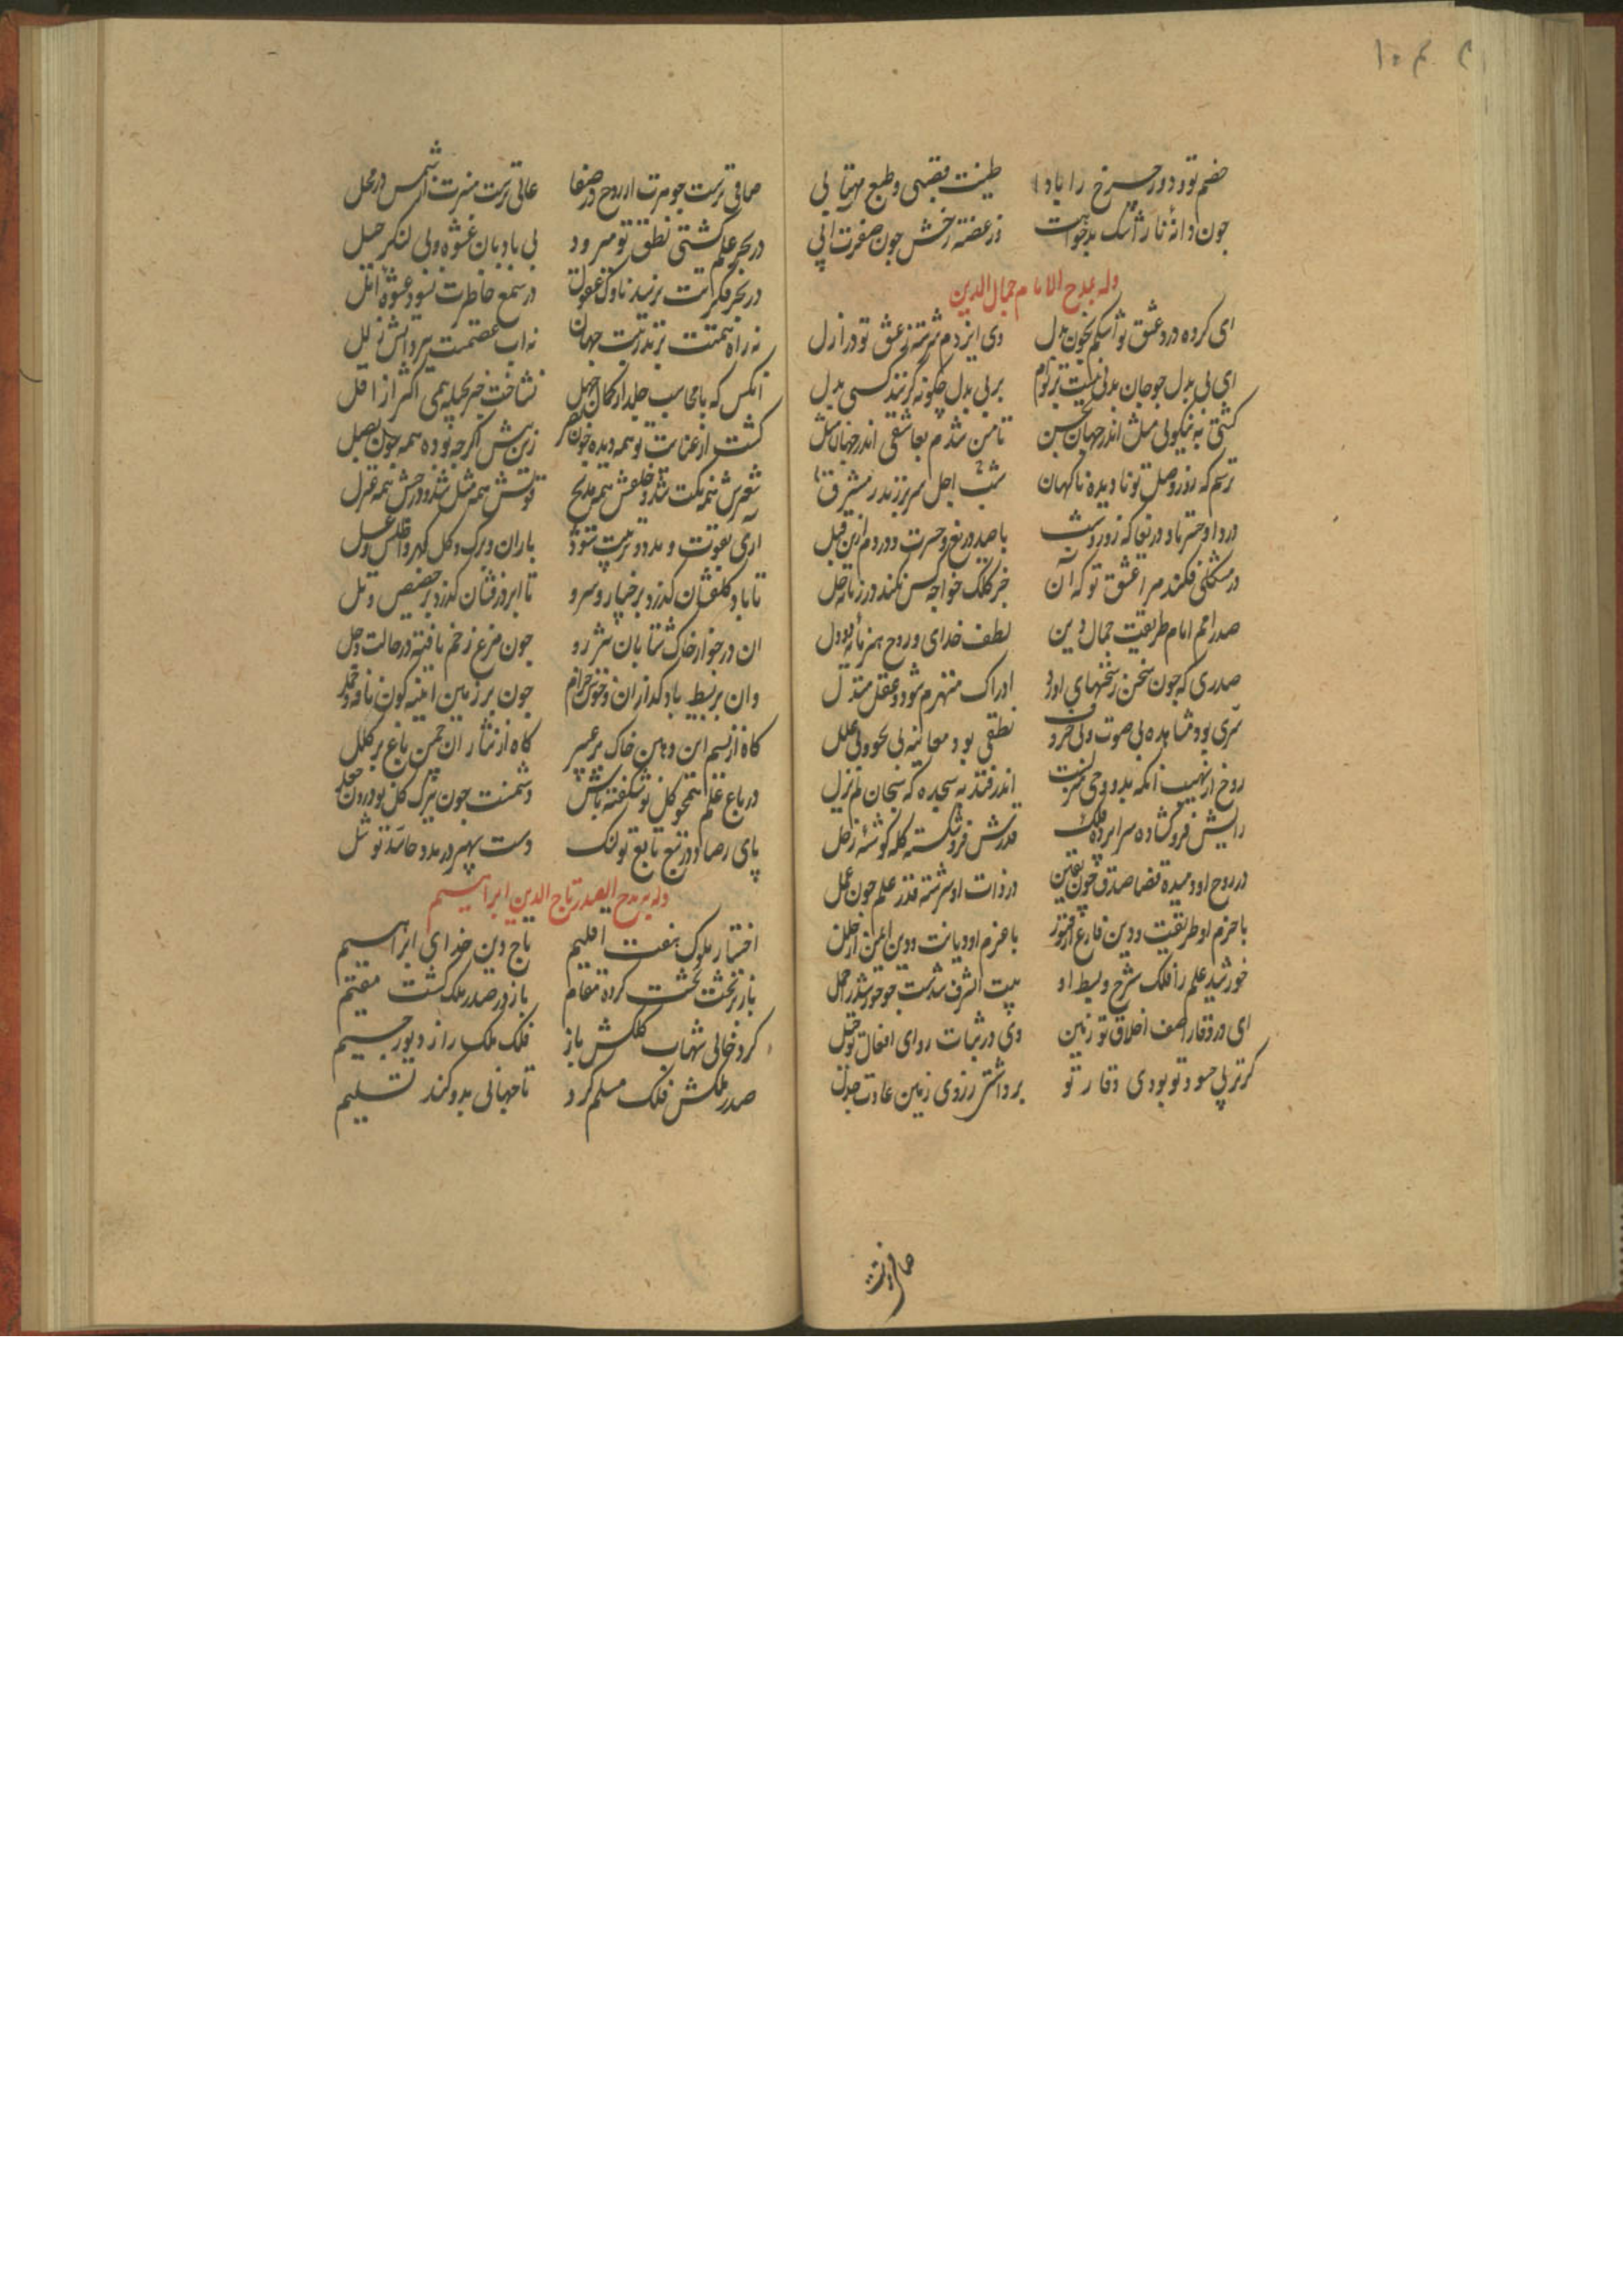 خصم تو و دور چرخ را بادا طینت قصبی و طبع مهتابی
چون دانهٔ نار اشک بدخواهت وز غصه رخش چون صفرت آبی
وله بمدح الامام جمال الدین
ای کرده درد عشق تو اشکم بخون بدل وی ایزدم سرشته ز عشق تو در ازل
ای بی بدل چو جان بدلی نیست بر توام بر بی بدل چگونه گزیند کسی بدل
گشتی به نیکوئی مثل اندر جهان حسن تا من شدم بعاشقی اندر جهان مثل
ترسم که روز وصل تو نادیده ناگهان شب اجل سر برزند ز مشرق
دردا و حسرتا و دریغا که روز و شب با صد دریغ و حسرت و دردم ازین قبل
در مشکلی فکند مرا عشق تو که آن جز کلک خواجه کس نکند در زمانه حل
صدر امم امام طریقت جمال دین لطف خدای و روح هنر مایهٔ دول
صدری که چون سخن ز سخنهای او رود ادراک منهزم شود و عقل مبتذل
سری بود مشاهده بی صوت و بی حروف نطقی بود معاینه بی نحو و بی علل
روح از نهیب آنکه بدو وحی منزلست اندر فتد به سجده که سبحان لم یزل
رایش فرو گشاده سراپرده فلک قدرش فرو شکسته کله گوشهٔ زحل
در روح او دمیده قضا صدق چون یقین در ذات او سرشته قدر علم چون عمل
با حزم او طریقت و دین فارغ از فتور با عزم او دیانت و دین ایمن از خلل
خورشید علم را فلک شرح و بسط او بیت الشرف شدست چو خورشید را حمل
ای در وقار اصف اخلاق تو زمین وی در ثبات راوی افعال تو جبل
گر تربی حسود تو بودی وقار تو برداشتی ز روی زمین عادت جدل
صافی ترست
صافی ترست جوهرت از روح در صفا عالی ترست منزلت از شمس در محل
در بحر علم کشتی نطق تو میرود بی بادبان عشوه و بی لنگر حیل
در بحر فکرتت نرسد ناوک عقول در سمع خاطرت نشود عشوهٔ امل
نه راه همتت بزند زینت جهان نه آب عصمتت ببرد آتش زلل
آنکس که با محاسب جلد از کمال جهل نشناخت جز بحیله همی اکثر از اقل
گشت از عنایت تو همه دیده چون بصر زین پیش اگرچه بوده همه چون بصل
شعرش همه نکت شد و خلقش همه مدیح قولش همه مثل شد و درجش همه غزل
آری بقوت و مدد و تربیت شود باران و برگ و گل گهر و اطلس و عسل
تا باد گلفشان گذرد بر خیار و سرو تا ابر درفشان گذرد بر حضیض و تل
آن در جوار خاک شتابان شرر رو چون مرغ زخم یافته در حالت وجل
وان بر بسیط باد گدازان و خوش خرام چون بر زمین آینه گون ناقه و جمل
گاه از نسیم این دهن خاک پر عبیر گاه از نثار آن چمن باغ پر کلل
در باغ علم همچو گل نو شکفته باش دشمنت چون ببرگ گل بو درون جعل
پای رضا و در تبع تابع تو لنگ دست سپهر در مدد حاسد تو شل
وله بمدح الصدر تاج الدین ابراهیم
اختیار ملوک هفت اقلیم تاج دین خدای ابراهیم
باز بر تخت بخت کرده مقام باز در صدر ملک گشت مقیم
کرد خالی شهاب کلکش باز فلک ملک را ز دیو رجیم
صدر ملکش فلک مسلم کرد تا جهانی بدو کند تسلیم